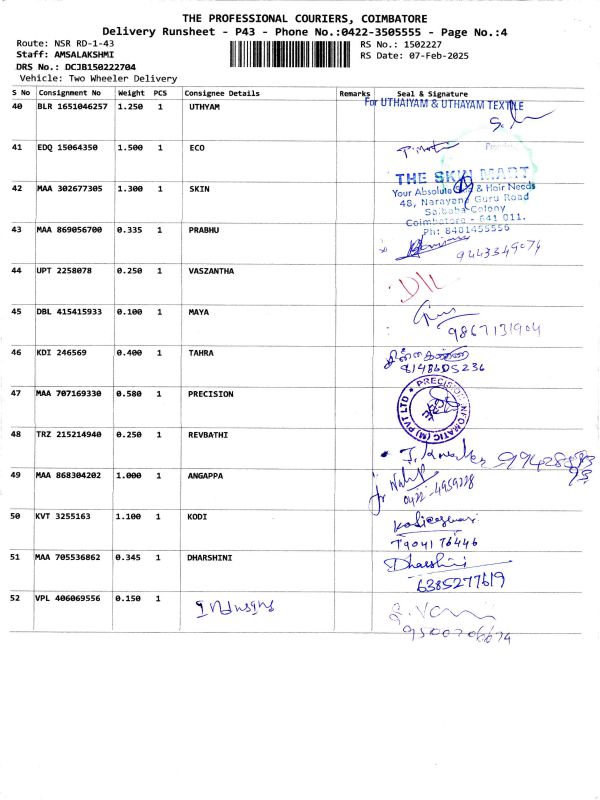 THE PROFESSIONAL COURIERS, COIMBATORE
Delivery Runsheet - P43 - Phone No.:0422-3505555 - Page No.:4
Route: NSR RD-1-43
RS No.: 1502227
Staff: AMSALAKSHMI
RS Date: 07-Feb-2025
DRS No.: DCJB150222704
Vehicle: Two Wheeler Delivery
S No Consignment No Weight PCS Consignee Details Remarks Seal & Signature
40 BLR 1651046257 1.250 1 UTHYAM
For UTHAIYAM & UTHAYAM TEXTILE
41 EDQ 15064350 1.500 1 ECO
42 MAA 302677305 1.300 1 SKIN
THE SKIN MART
Your Absolute & Hair Needs
48, Narayana Guru Road
Saibaba Colony
Coimbatore - 641 011.
Ph: 8401455555
43 MAA 869056700 0.335 1 PRABHU
9443349074
44 UPT 2258078 0.250 1 VASZANTHA
45 DBL 415415933 0.100 1 MAYA
9867131904
46 KDI 246569 0.400 1 TAHRA
8148605236
47 MAA 707169330 0.580 1 PRECISION
PRECISION INFOMATIC (M) PVT LTD
48 TRZ 215214940 0.250 1 REVBATHI
49 MAA 868304202 1.000 1 ANGAPPA
0422-4959228
50 KVT 3255163 1.100 1 KODI
Kodieswari
7904176446
51 MAA 705536862 0.345 1 DHARSHINI
Dharshini
6385277619
52 VPL 406069556 0.150 1
9500706674